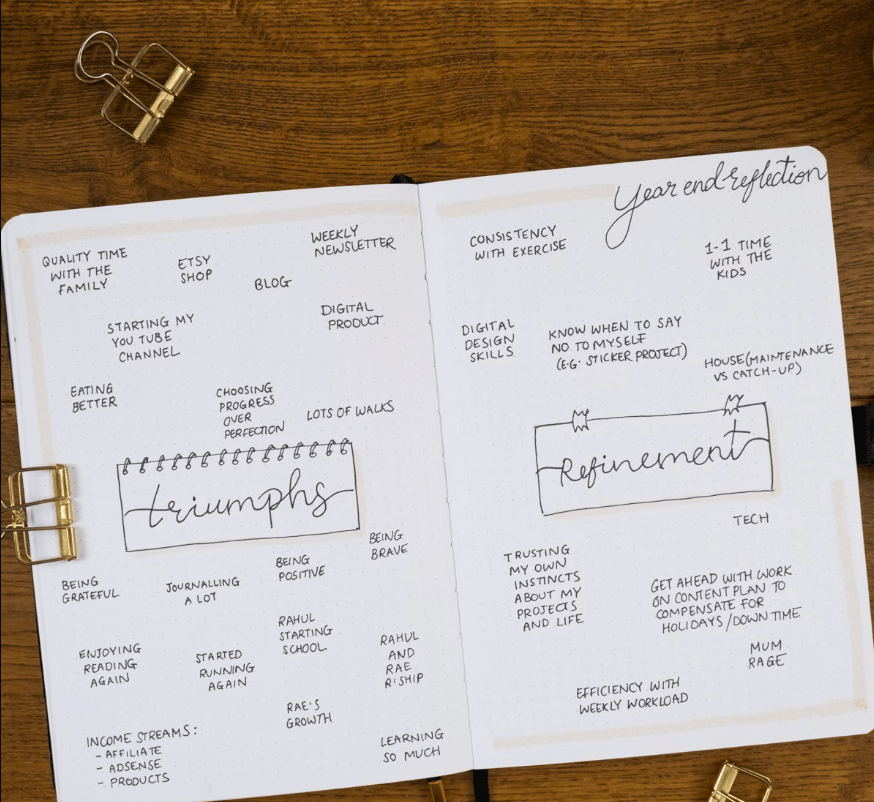 QUALITY TIME
WITH THE
FAMILY
ETSY
SHOP
WEEKLY
NEWSLETTER
BLOG
STARTING MY
YOU TUBE
CHANNEL
DIGITAL
PRODUCT
EATING
BETTER
CHOOSING
PROGRESS
OVER
PERFECTION
LOTS OF WALKS
triumphs
BEING
GRATEFUL
JOURNALLING
A LOT
BEING
POSITIVE
BEING
BRAVE
ENJOYING
READING
AGAIN
STARTED
RUNNING
AGAIN
RAHUL
STARTING
SCHOOL
RAHUL
AND
RAE
R'SHIP
RAE'S
GROWTH
INCOME STREAMS:
- AFFILIATE
- ADSENSE
- PRODUCTS
LEARNING
SO MUCH
Year end reflection
CONSISTENCY
WITH EXERCISE
1-1 TIME
WITH THE
KIDS
DIGITAL
DESIGN
SKILLS
KNOW WHEN TO SAY
NO TO MYSELF
(E.G. STICKER PROJECT)
HOUSE(MAINTENANCE
VS CATCH-UP)
Refinement
TECH
TRUSTING
MY OWN
INSTINCTS
ABOUT MY
PROJECTS
AND LIFE
GET AHEAD WITH WORK
ON CONTENT PLAN TO
COMPENSATE FOR
HOLIDAYS/DOWN TIME
MUM
RAGE
EFFICIENCY WITH
WEEKLY WORKLOAD